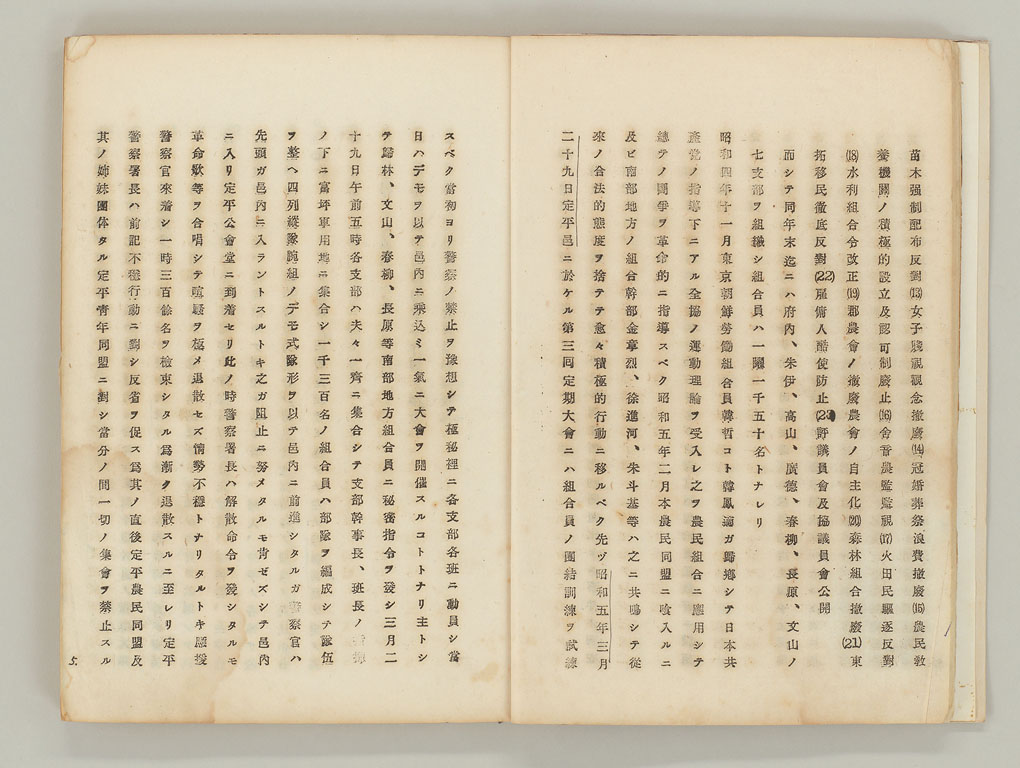 苗木强制配布反對⒀女子賤視觀念撤廢⒁冠婚葬祭浪費撤廢⒂農民敎
養機關ノ積極的設立及認可制廢止⒃舍音農監監視⒄火田民驅逐反對
⒅水利組合令改正⒆郡農會ノ撤廢農會ノ自主化⒇森林組合撤廢(21)東
拓移民徹底反對(22)雇傭人酷使防止(23)評議員會及協議員會公開
而シテ同年末迄ニハ府內、朱伊、高山、廣德、春柳、長原、文山ノ
七支部ヲ組織シ組合員ハ一躍一千五十名トナレリ
昭和四年十一月東京朝鮮勞働組合員韓哲コト韓鳳適ガ歸鄕シテ日本共
產党ノ指導下ニアル全協ノ運動理論ヲ受入レ之ヲ農民組合ニ應用シテ
總テノ鬪爭ヲ革命的ニ指導スベク昭和五年二月本農民同盟ニ喰入ルニ
及ビ南部地方ノ組合幹部金章烈、徐進河、朱斗基等ハ之ニ共鳴シテ從
來ノ合法的態度ヲ捨テテ愈々積極的行動ニ移ルベク先ヅ昭和五年三月
二十九日定平邑ニ於ケル第三回定期大會ニハ組合員ノ團結訓練ヲ試練
スベク當初ヨリ警察ノ禁止ヲ豫想シテ極秘裡ニ各支部各班ニ動員シ當
日ハデモヲ以テ邑內ニ乘込ミ一氣ニ大會ヲ開催スルコトトナリ主トシ
テ歸林、文山、春柳、長原等南部地方組合員ニ秘密指令ヲ發シ三月二
十九日午前五時各支部ハ夫々一齊ニ集合シテ支部幹事長、班長ノ
ノ下ニ富坪軍用地ニ集合シ一千三百名ノ組合員ハ部隊ヲ編成シテ隊伍
ヲ整ヘ四列縱隊腕組ノデモ式隊形ヲ以テ邑內ニ前進シタルガ警察官ハ
先頭ガ邑內ニ入ラントスルトキ之ガ阻止ニ努メタルモ肯ゼズシテ邑內
ニ入リ定平公會堂ニ到着セリ此ノ時警察署長ハ解散命令ヲ發シタルモ
革命歌等ヲ合唱シテ喧騷ヲ極メ退散セズ情勢不穩トナリタルトキ應援
警察官來着シ一時三百餘名ヲ檢束シタル爲漸ク退散スルニ至レリ定平
警察署長ハ前記不穩行動ニ對シ反省ヲ促ス爲其ノ直後定平農民同盟及
其ノ姊妹團体タル定平靑年同盟ニ對シ當分ノ間一切ノ集會ヲ禁止スル
5.